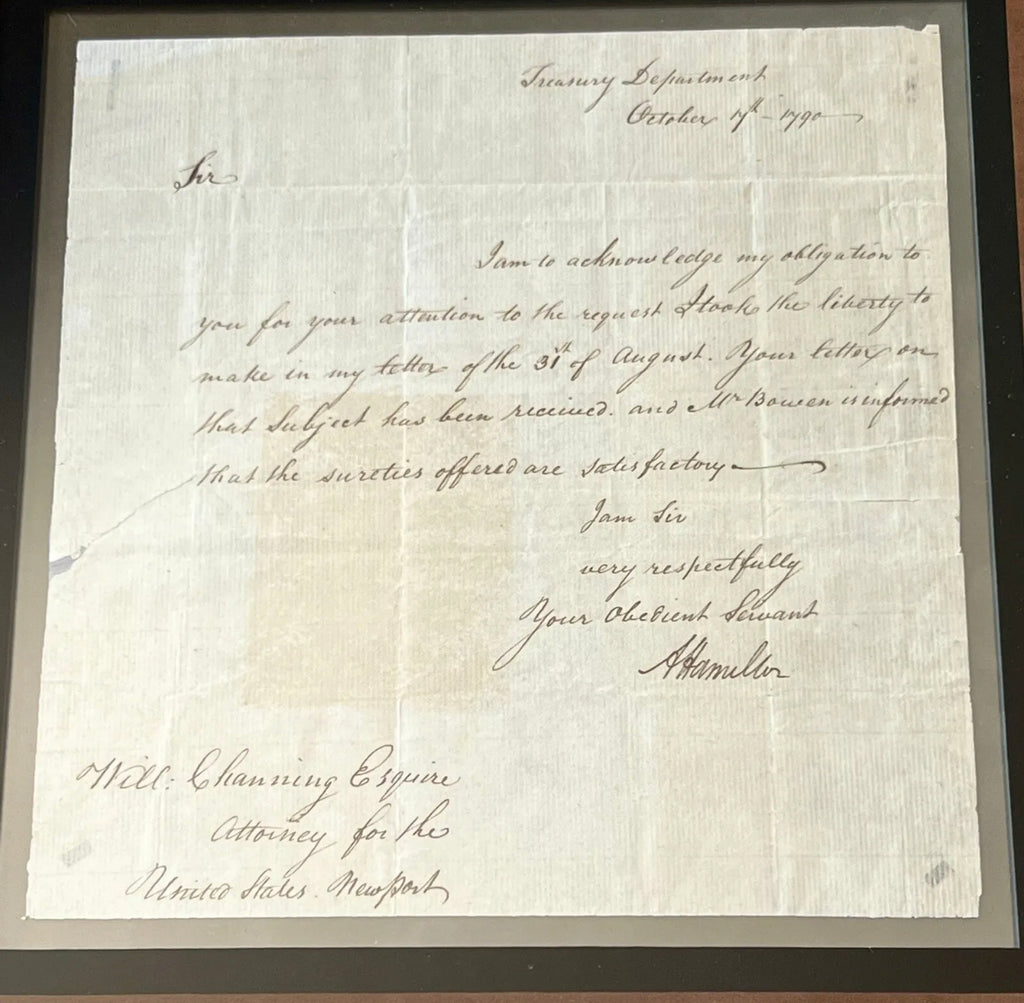 Treasury Department
October 17th – 1790
Sir
I am to acknowledge my obligation to
you for your attention to the request I took the liberty to
make in my letter of the 31st of August. Your letter on
that Subject has been received. and Mr Bowen is informed
that the sureties offered are satisfactory
I am Sir
very respectfully
Your Obedient Servant
A Hamilton
Will: Channing Esquire
Attorney for the
United States. NewPort